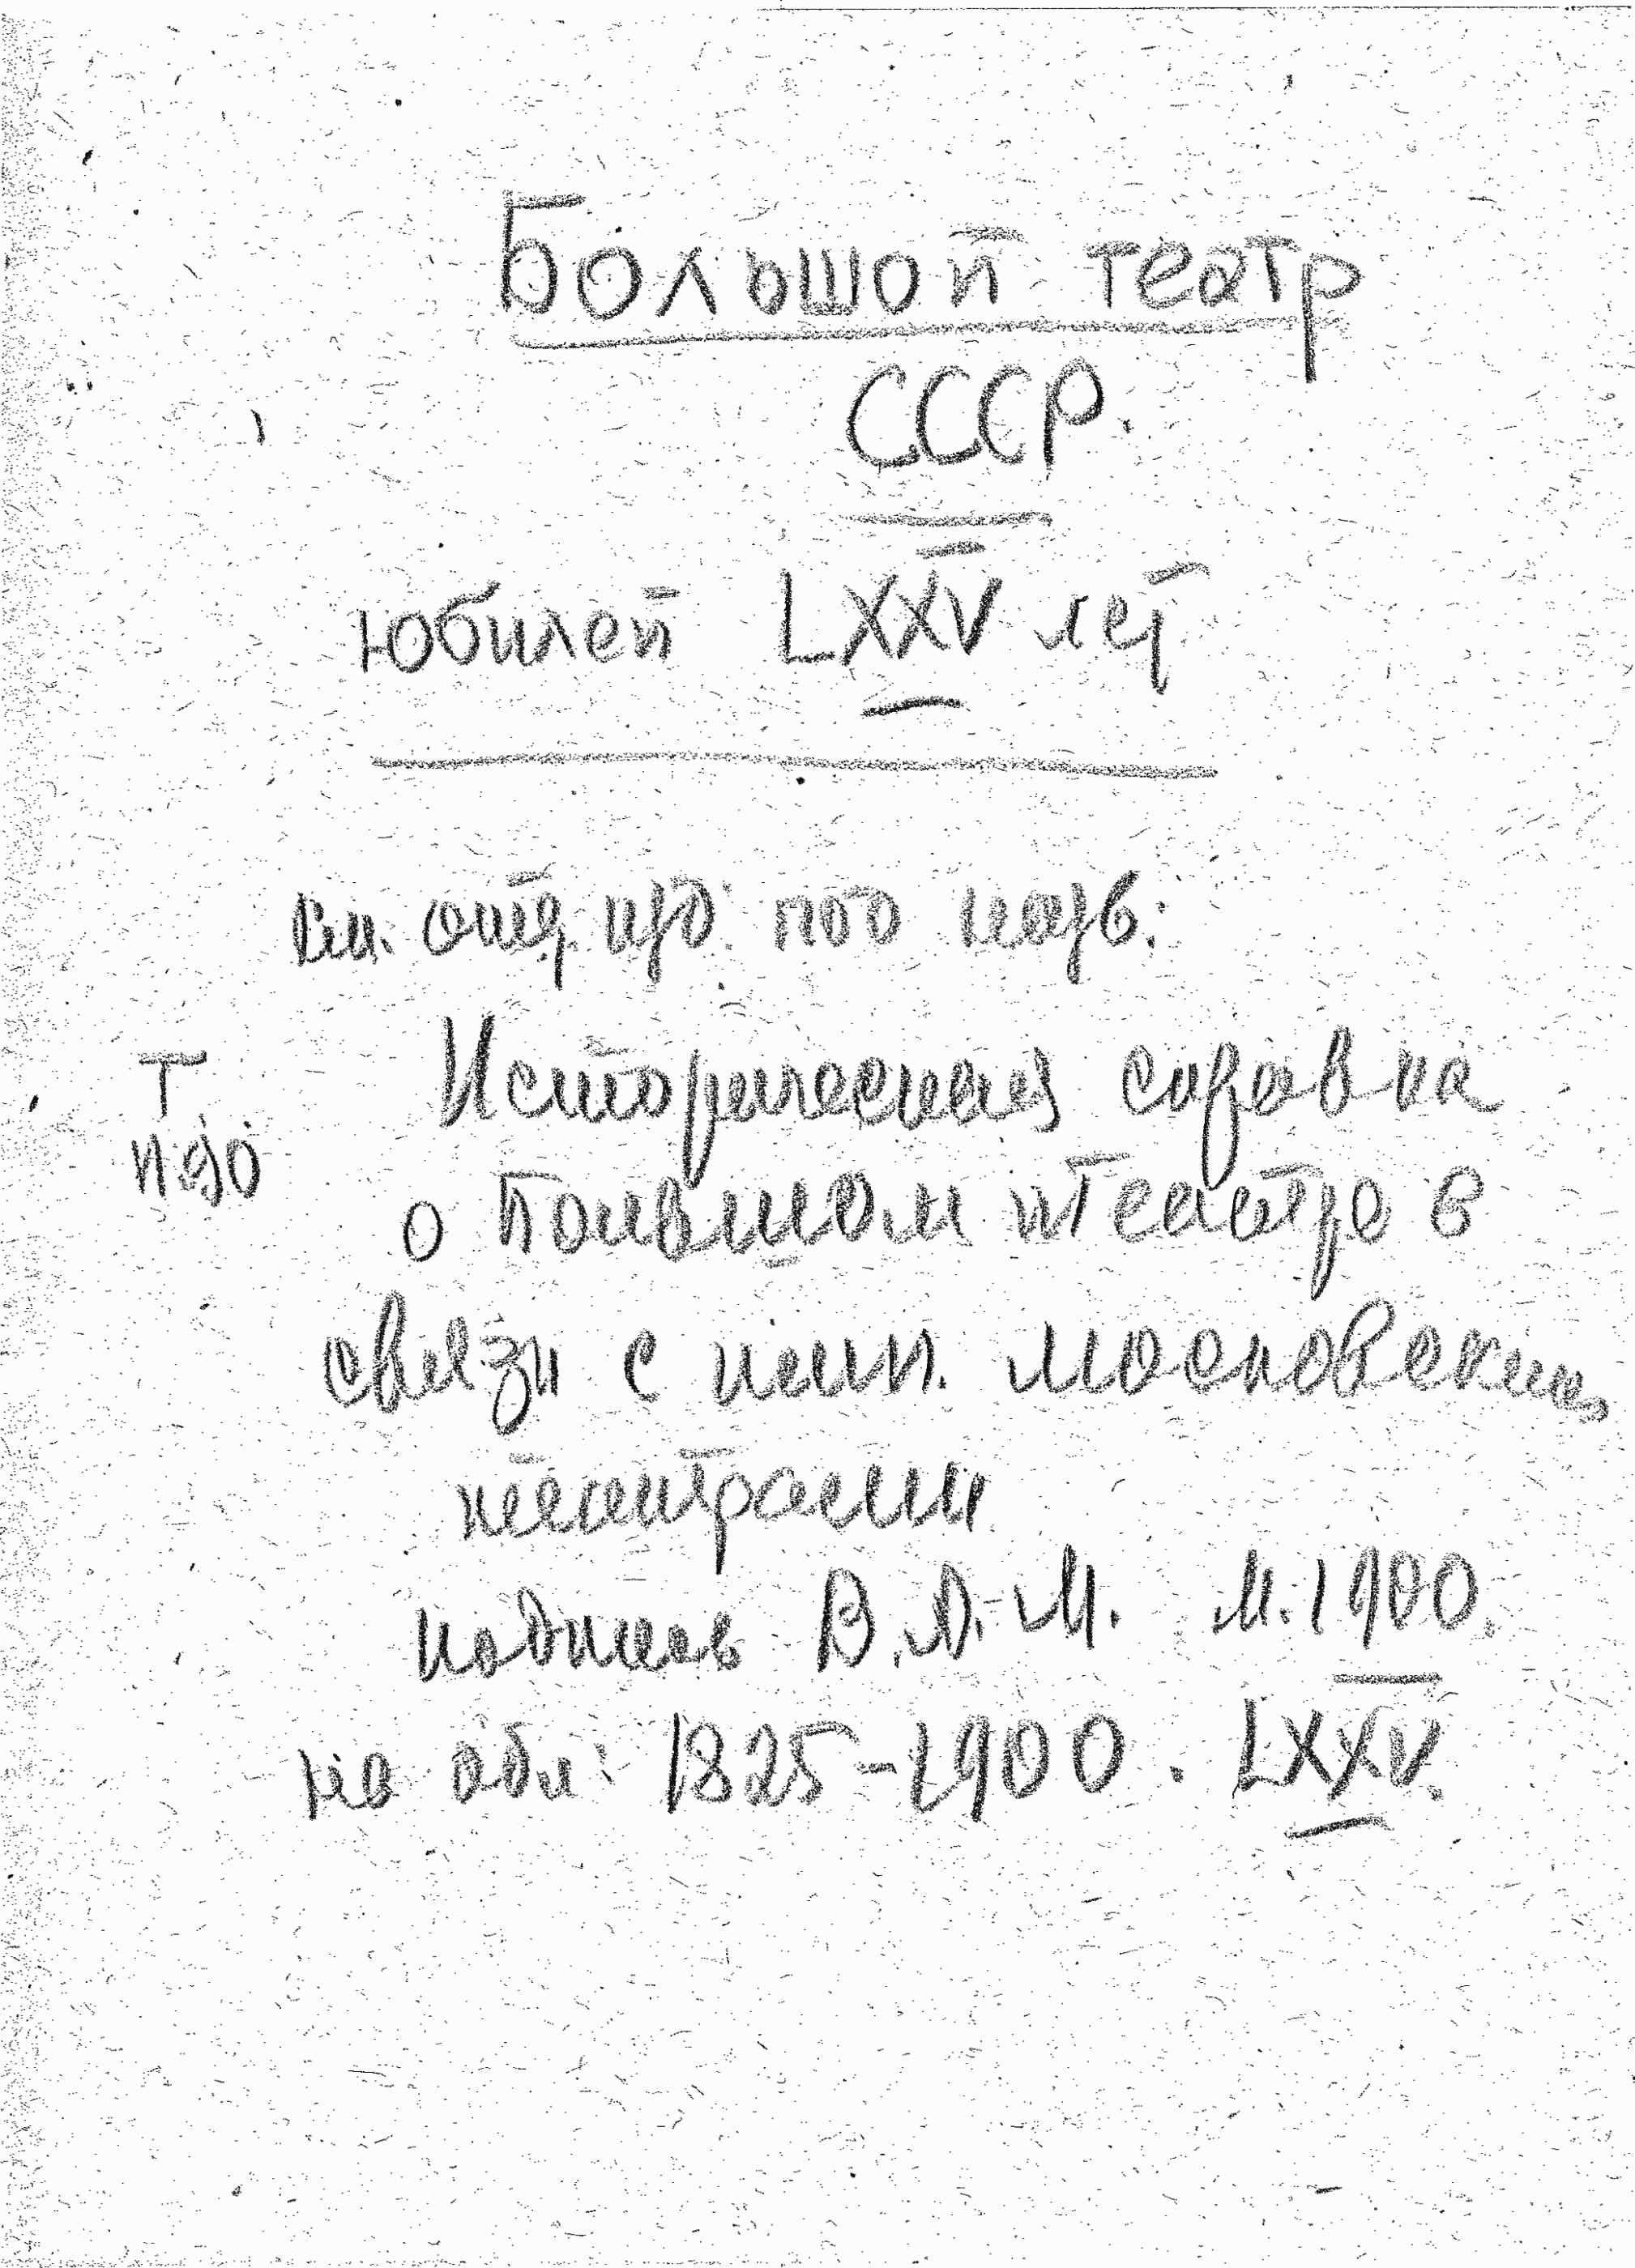 Большой театр
СССР.
Юбилей LXXV лет
См. отд. изд. под назв.:
Историческая справка
о Большом театре в
связи с имп. московскими
театрами
М. 1900.
На обл: 1825-1900. LXXV.